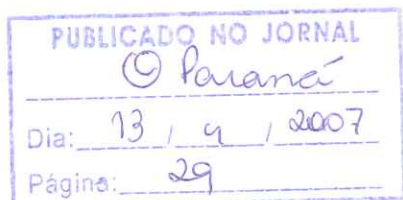 PUBLICADO NO JORNAL
O Paraná
Dia: 13 / 4 / 2007
Página: 29